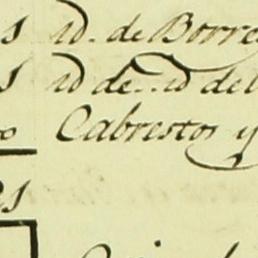 s id. de Borre
s id de id del
o Cabrestos y
es